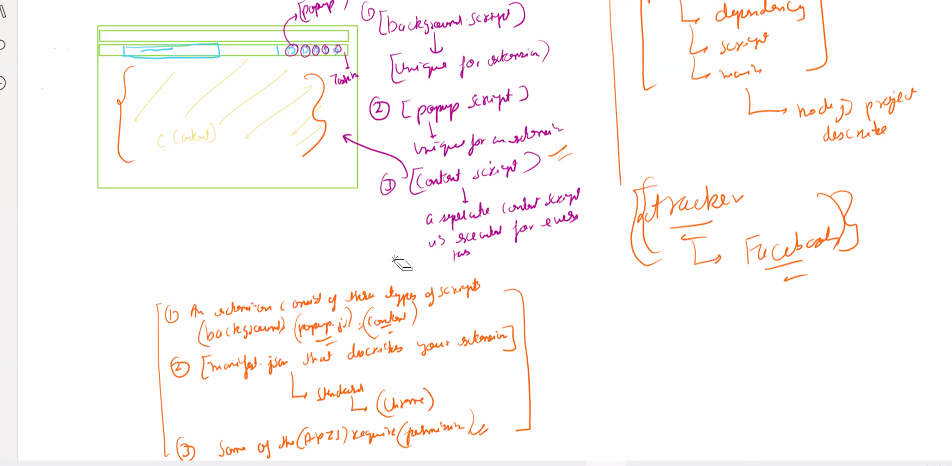 [popup]
① [background script]
[Unique for extension]
② [popup script]
Unique for an extension
③ [Content script]
a separate content script
is executed for every
tab
C (ontent)
dependency
script
main
node js project
describe
tracker
Facebook
① An extension consist of three types of scripts
(background) (popup.js) (content)
② [manifest.json that describes your extension]
standard
(chrome)
③ Some of the (APIs) require (permission)